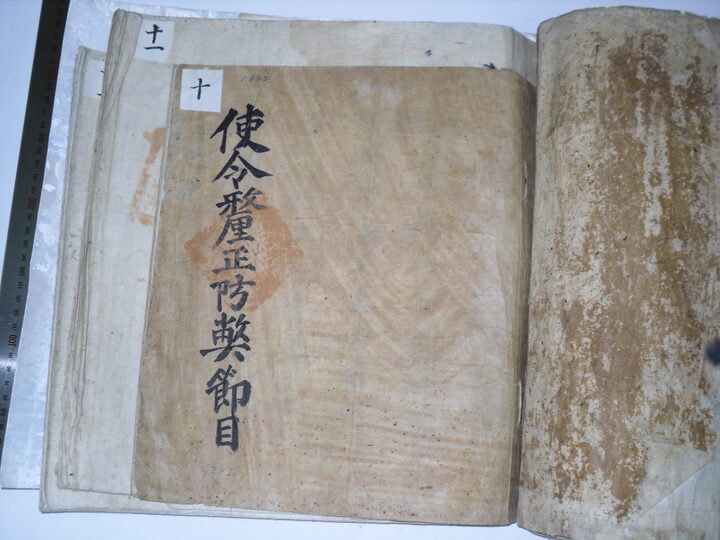 十一
十
使令釐正防弊節目